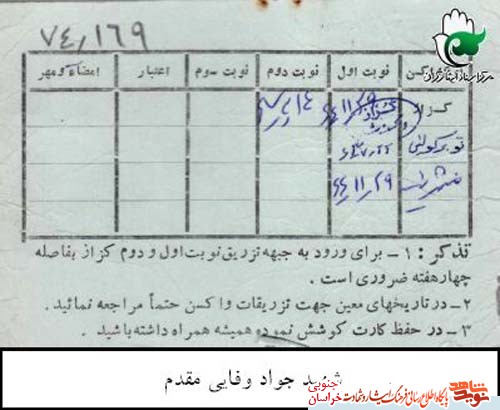 ۷۴٫۱۶۹
مرکز اسناد ایثارگران
واکسن نوبت اول نوبت دوم نوبت سوم اعتبار امضاء و مهر
کزاز
توبرکولین
۶۴٫۱۱٫۲۹
تذکر : ۱- برای ورود به جبهه تزریق نوبت اول و دوم کزاز بفاصله
چهار هفته ضروری است .
۲- در تاریخهای معین جهت تزریقات واکسن حتماً مراجعه نمائید .
۳- در حفظ کارت کوشش نموده همیشه همراه داشته باشید .
شهید جواد وفایی مقدم
نوید شاهد
خراسان جنوبی
پایگاه اطلاع رسانی فرهنگ ایثار و شهادت